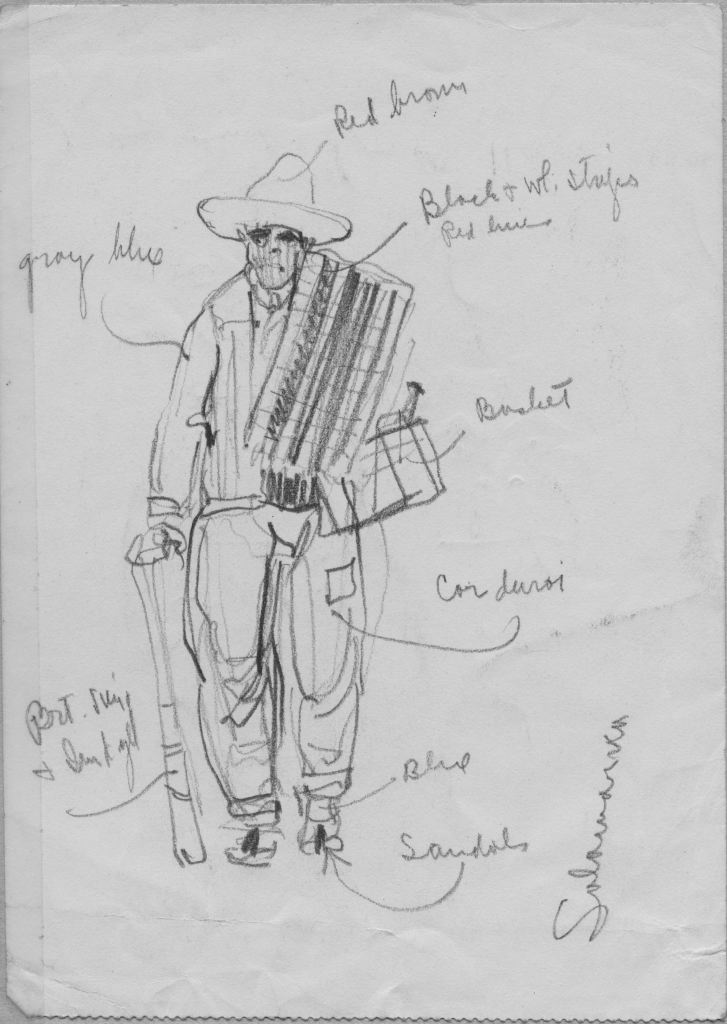 Red brown
Black & Wh. Stripes
Red lines
gray blue
Basket
Corduroi
&
Blue
Sandals
Salamanca